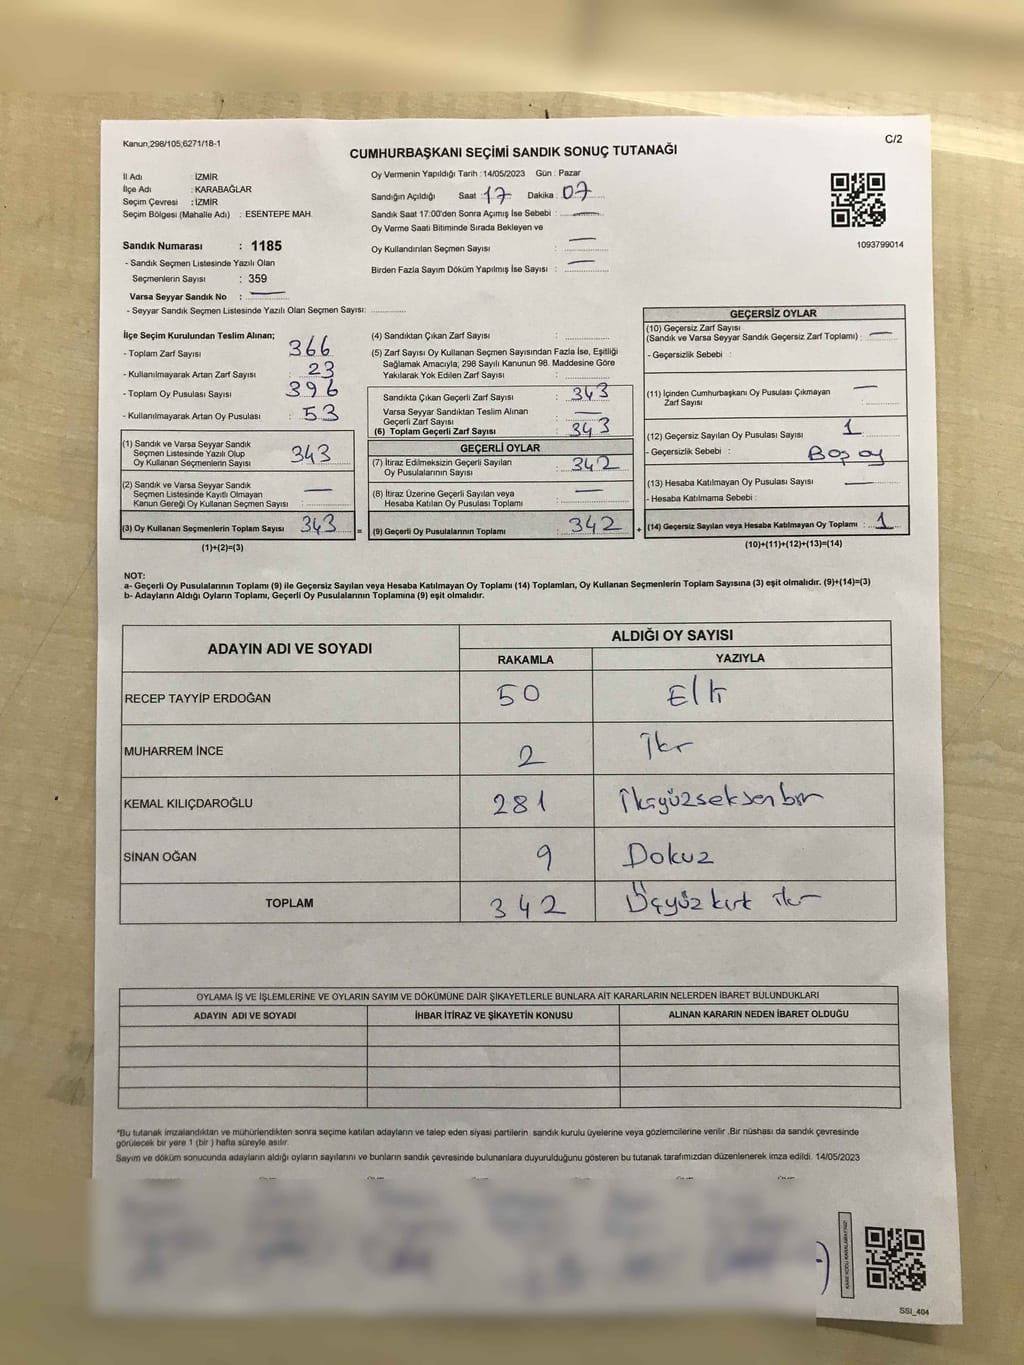 Kanun;298/105;6271/18-1
C/2
CUMHURBAŞKANI SEÇİMİ SANDIK SONUÇ TUTANAĞI
İl Adı : İZMİR
İlçe Adı : KARABAĞLAR
Seçim Çevresi : İZMİR
Seçim Bölgesi (Mahalle Adı) : ESENTEPE MAH.
Sandık Numarası : 1185
- Sandık Seçmen Listesinde Yazılı Olan
Seçmenlerin Sayısı : 359
Varsa Seyyar Sandık No :
- Seyyar Sandık Seçmen Listesinde Yazılı Olan Seçmen Sayısı:
Oy Vermenin Yapıldığı Tarih : 14/05/2023 Gün : Pazar
Sandığın Açıldığı Saat : 17 Dakika : 07
Sandık Saat 17:00'den Sonra Açımış İse Sebebi :
Oy Verme Saati Bitiminde Sırada Bekleyen ve
Oy Kullandırılan Seçmen Sayısı :
Birden Fazla Sayım Döküm Yapılmış İse Sayısı :
1093799014
İlçe Seçim Kurulundan Teslim Alınan;
- Toplam Zarf Sayısı : 366
- Kullanılmayarak Artan Zarf Sayısı : 23
- Toplam Oy Pusulası Sayısı : 396
- Kullanılmayarak Artan Oy Pusulası : 53
(1) Sandık ve Varsa Seyyar Sandık
Seçmen Listesinde Yazılı Olup
Oy Kullanan Seçmenlerin Sayısı : 343
(2) Sandık ve Varsa Seyyar Sandık
Seçmen Listesinde Kayıtlı Olmayan
Kanun Gereği Oy Kullanan Seçmen Sayısı :
(3) Oy Kullanan Seçmenlerin Toplam Sayısı : 343
(1)+(2)=(3)
(4) Sandıktan Çıkan Zarf Sayısı :
(5) Zarf Sayısı Oy Kullanan Seçmen Sayısından Fazla İse, Eşitliği
Sağlamak Amacıyla; 298 Sayılı Kanunun 98. Maddesine Göre
Yakılarak Yok Edilen Zarf Sayısı :
Sandıkta Çıkan Geçerli Zarf Sayısı : 343
Varsa Seyyar Sandıktan Teslim Alınan
Geçerli Zarf Sayısı :
(6) Toplam Geçerli Zarf Sayısı : 343
GEÇERLİ OYLAR
(7) İtiraz Edilmeksizin Geçerli Sayılan
Oy Pusulalarının Sayısı : 342
(8) İtiraz Üzerine Geçerli Sayılan veya
Hesaba Katılan Oy Pusulası Toplamı :
= (9) Geçerli Oy Pusulalarının Toplamı : 342 +
GEÇERSİZ OYLAR
(10) Geçersiz Zarf Sayısı
(Sandık ve Varsa Seyyar Sandık Geçersiz Zarf Toplamı) :
- Geçersizlik Sebebi :
(11) İçinden Cumhurbaşkanı Oy Pusulası Çıkmayan
Zarf Sayısı :
(12) Geçersiz Sayılan Oy Pusulası Sayısı : 1
- Geçersizlik Sebebi : Boş oy
(13) Hesaba Katılmayan Oy Pusulası Sayısı :
- Hesaba Katılmama Sebebi :
(14) Geçersiz Sayılan veya Hesaba Katılmayan Oy Toplamı : 1
(10)+(11)+(12)+(13)=(14)
NOT:
a- Geçerli Oy Pusulalarının Toplamı (9) ile Geçersiz Sayılan veya Hesaba Katılmayan Oy Toplamı (14) Toplamları, Oy Kullanan Seçmenlerin Toplam Sayısına (3) eşit olmalıdır. (9)+(14)=(3)
b- Adayların Aldığı Oyların Toplamı, Geçerli Oy Pusulalarının Toplamına (9) eşit olmalıdır.
ADAYIN ADI VE SOYADI ALDIĞI OY SAYISI
RAKAMLA YAZIYLA
RECEP TAYYİP ERDOĞAN 50 Elli
MUHARREM İNCE 2 İki
KEMAL KILIÇDAROĞLU 281 İkiyüzseksenbir
SİNAN OĞAN 9 Dokuz
TOPLAM 342 Üçyüz kırk iki
OYLAMA İŞ VE İŞLEMLERİNE VE OYLARIN SAYIM VE DÖKÜMÜNE DAİR ŞİKAYETLERLE BUNLARA AİT KARARLARIN NELERDEN İBARET BULUNDUKLARI
ADAYIN ADI VE SOYADI İHBAR İTİRAZ VE ŞİKAYETİN KONUSU ALINAN KARARIN NEDEN İBARET OLDUĞU
*Bu tutanak imzalandıktan ve mühürlendikten sonra seçime katılan adayların ve talep eden siyasi partilerin sandık kurulu üyelerine veya gözlemcilerine verilir .Bir nüshası da sandık çevresinde
görülecek bir yere 1 (bir ) hafta süreyle asılır.
Sayım ve döküm sonucunda adayların aldığı oyların sayılarını ve bunların sandık çevresinde bulunanlara duyurulduğunu gösteren bu tutanak tarafımızdan düzenlenerek imza edildi. 14/05/2023
SSİ_404